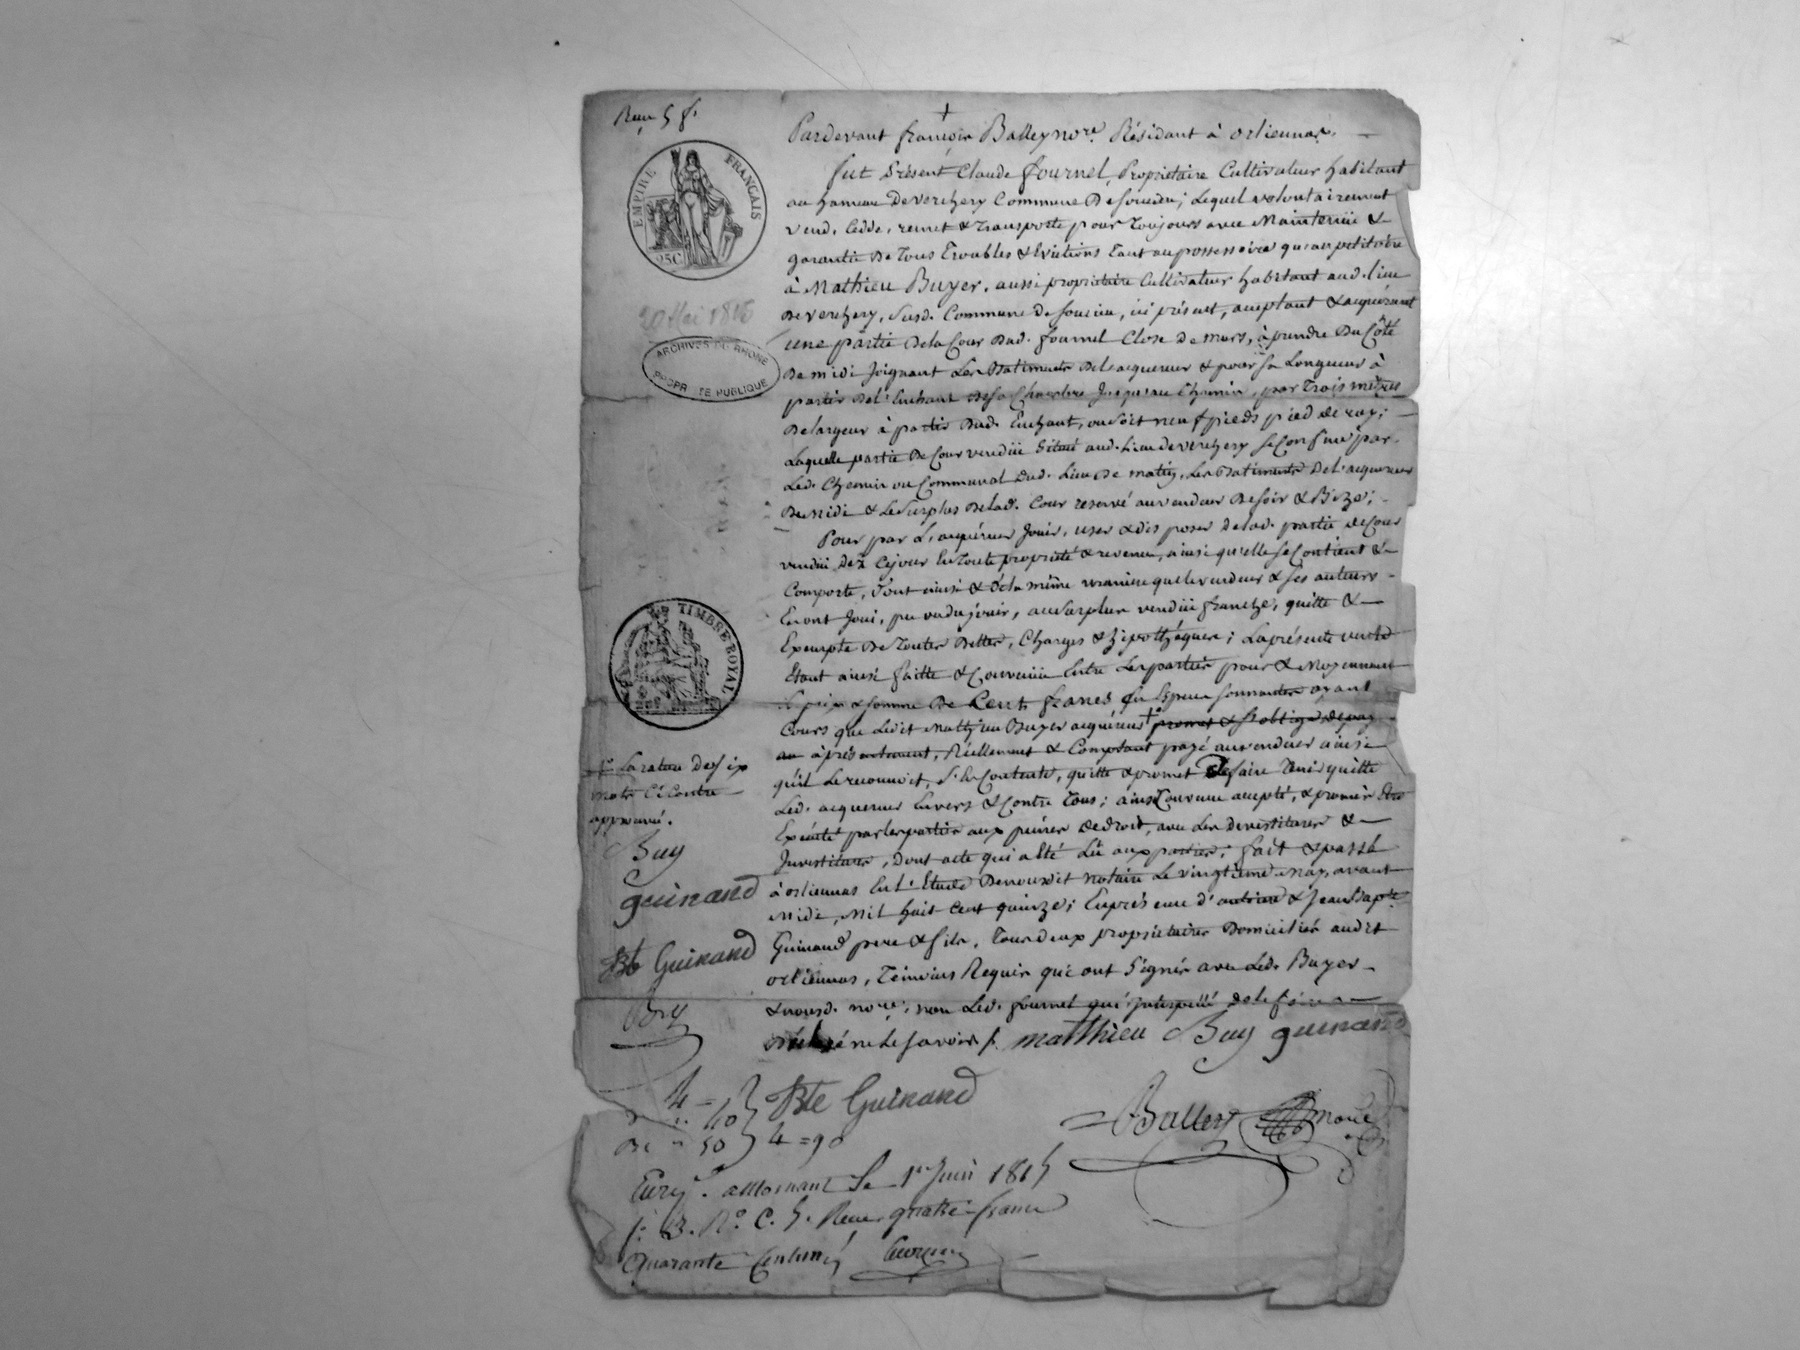 Reçu 5 f.
Pardevant françois Balley no.re Résidant à orliennas,
fut Présent Claude fournel, Propriétaire Cultivateur habitant
au hameau de verchery Commune de soucieu; Lequel volontairement
vend, Cedde, remet & transporte pour toujours avec Maintenüe &
garantie de tous troubles & évictions tant au possessoire qu'au petitoire
à Mathieu Buyer, aussi propriétaire Cultivateur habitant aud. lieu
de verchery, susd. Commune de soucieu, ici présent, acceptant & acquérant
une partie de la Cour dud. fournel Close de murs, à prendre du Côté
de midi joignant Les Batiments de l'acquereur & pour sa Longueur à
partir de l'Enchant de sa Chambre jusqu'au Chemin, par trois mètres
de largeur à partir dud. Enchant, ou soit neuf pieds pied de roy;
Laquelle partie de Cour vendüe située aud. Lieu de verchery se Confine par
Led. Chemin ou Communal dud. Lieu de matin, Les Batiments de L'acquereur
de Midi & Le surplus de lad. Cour reservé au vendeur de soir & Bize;
Pour par L'acquéreur jouir, user & disposer de lad. partie de Cour
vendüe dez Cejour en toute propriété & revenu, ainsi qu'elle se Contient &
Comporte, tout ainsi & de la même manière que le vendeur & ses auteurs
En ont joui, pu ou du jouir, au surplus vendüe franche, quitte &
Exempte de toutes dettes, Charges & hipothèques; La présente vente
étant ainsi faitte & Convenüe Entre Les parties pour & Moyennant
Le prix & somme de Cent francs En Espèces sonnantes ayant
Cours que Ledit Mathieu Buyer acquéreur + promet & s'oblige de pay
er à présentement, Réellement & Comptant payé au vendeur ainsi
qu'il Le reconnoit, s'en Contente, quitte & promet de faire tenir quitte
Led. acquereur Envers & Contre tous; ainsi Convenu accepté, & promis être
Exécuté par les parties aux peines de droit, avec Les devestitures &
Investitures, dont acte qui a été Lû aux parties; fait & passé
à orliennas En L'Etude de nousdit notaire Le vingtième May, avant
Midi, Mil huit Cent quinze; En présence d'antoine & Jean Bapte.
Guinand pere & fils, tous deux propriétaires domiciliés audit
orliennas, témoins Requis qui ont signés avec Led. Buyer
& nousd. no.re; non Led. fournel qui interpellé de le faire
a déclaré ne le savoir f. matthieu Buy guinand
Bte Guinand
Balley nore
EMPIRE FRANÇAIS
25C
20 Mai 1815
ARCHIVES DU RHÔNE
PROPRIÉTÉ PUBLIQUE
TIMBRE ROYAL
+ La rature de six
mots Ci Contre
approuvé.
Buy
guinand
Bte Guinand
4 =
40
50 } 4 = 90
Enrgé. a Mornant Le 1er Juin 1815
f. 13. Ro C. 5. Reçu quatre francs
Quarante Centimes